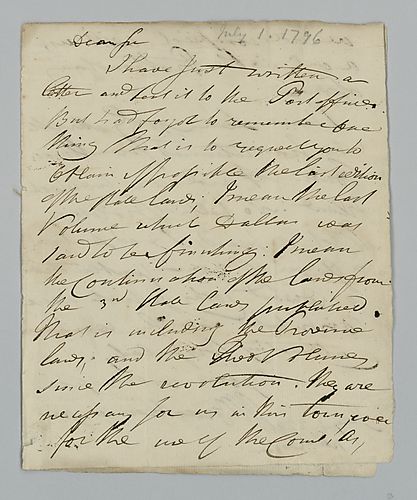 July 1. 1796
Dear Sir
I have just written a
letter and sent it to the Post office.
But had forgot to remember one
thing that is to request you to
obtain if possible the last edition
of the State laws; I mean the last
Volume which Dallas was
said to be finishing. I mean
the Continuation of the laws from
the 3rd State laws published
that is including the Province
laws; and the Volumes
since the revolution. they are
necessary for us in this town, even
for the use of the Court, As,